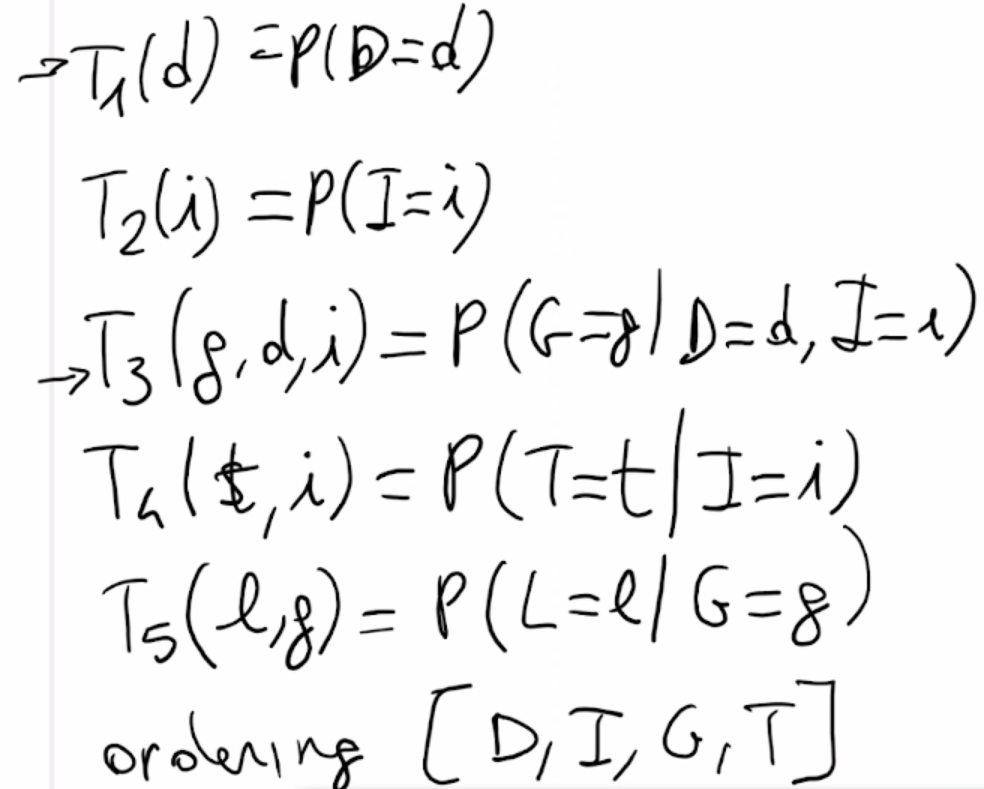 →T₁(d) =P(D=d)
T₂(i) =P(I=i)
→T₃(g,d,i)= P(G=g| D=d, I=i)
T₄(t,i)= P(T=t|I=i)
T₅(l,g)= P(L=l| G=g)
ordering [D, I, G, T]